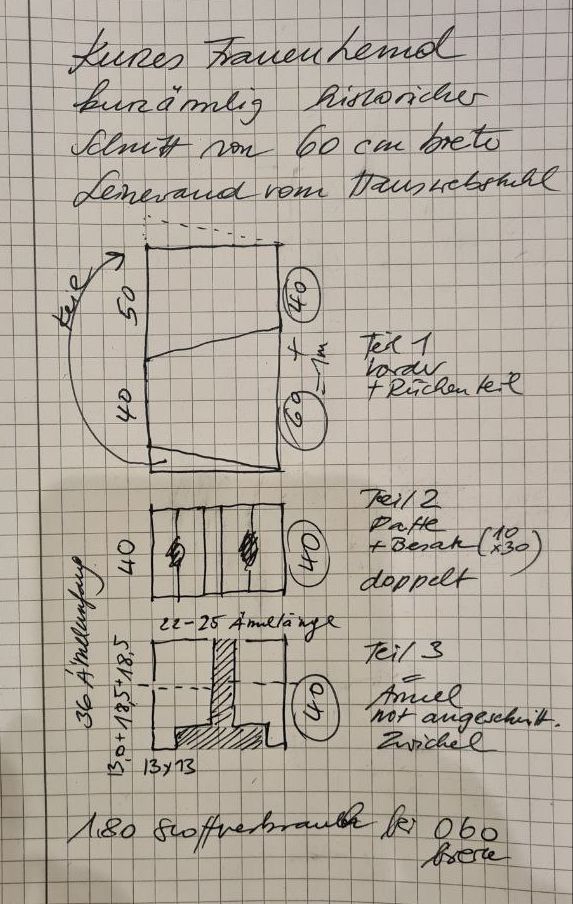 Kurzes Frauenhemd
kurzärmlig historischer
Schnitt von 60 cm breite
Leinewand vom Hauswebstuhl
Keil
50
40
40
+
60
=1m
Teil 1
Vorder
+ Rückenteil
40
40
Teil 2
Patte
+ Besatz (10 x30)
doppelt
22-25 Ärmellänge
36 Ärmelumfang
13,0+18,5+18,5
40
13x13
Teil 3
=
Ärmel
mit angeschnitt.
Zwickel
1.80 Stoffverbrauch bei 060
breite